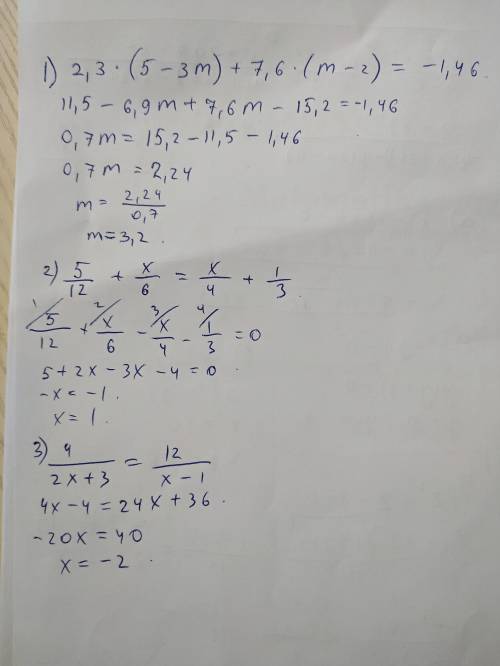 1) 2,3 · (5 - 3m) + 7,6 · (m - 2) = -1,46
11,5 - 6,9m + 7,6m - 15,2 = -1,46
0,7m = 15,2 - 11,5 - 1,46
0,7m = 2,24
m = 2,24/0,7
m = 3,2.
2) 5/12 + x/6 = x/4 + 1/3
1/ 5/12 + 2/ x/6 - 3/ x/4 - 4/ 1/3 = 0
5 + 2x - 3x - 4 = 0.
-x = -1.
x = 1.
3) 4/(2x+3) = 12/(x-1)
4x - 4 = 24x + 36.
-20x = 40
x = -2.